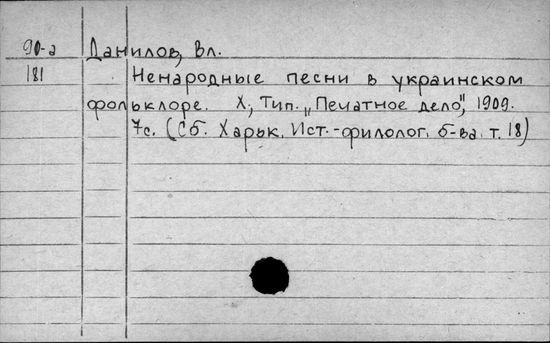 90-а Данилов, Вл.
181 Ненародные песни в украинском
фольклоре. Х., Тип. „Печатное дело", 1909.
7с. (Сб. Харьк. Ист.-филолог. б-ва. т. 18)